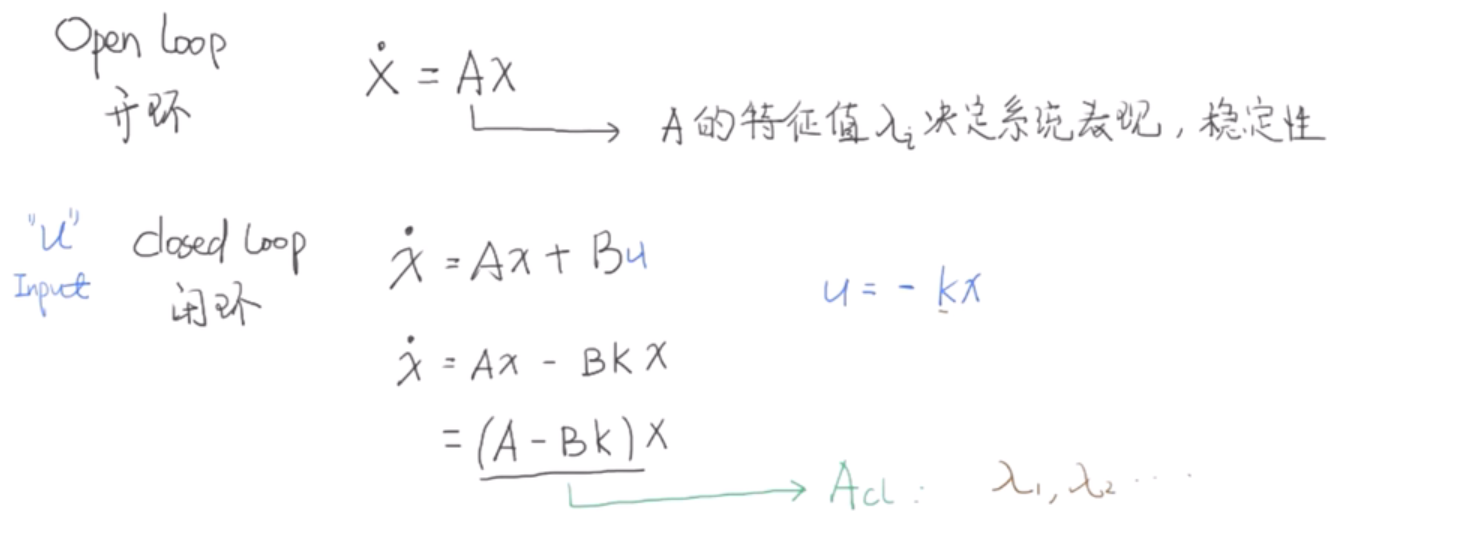 Open loop
开环
ẋ = Ax
A的特征值λi决定系统表现，稳定性
"u"
Input
closed loop
闭环
ẋ = Ax + Bu
u = - kx
ẋ = Ax - BKX
= (A - BK)X
Acl: λ1, λ2 ...